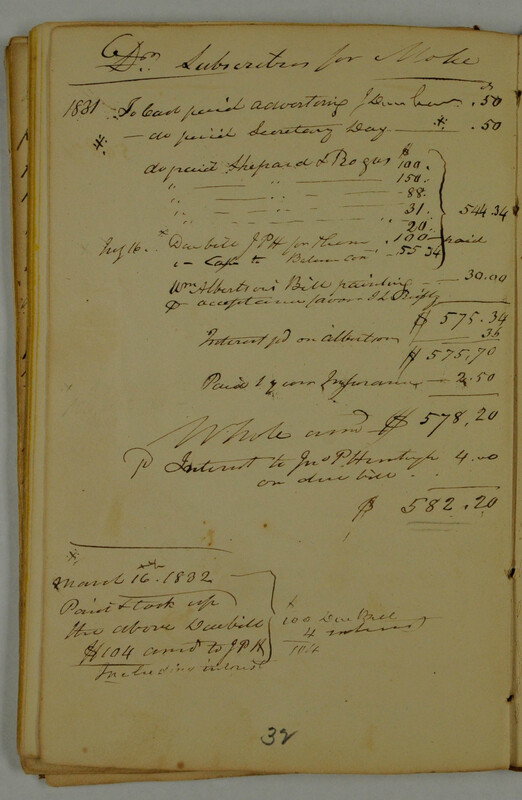 Dr. Subscribers for
1831 To Cash paid advertising J .50
— do paid Secretary Day — .50
do paid Shepard & Rogas $ 100.
" — " — " — 150.
" — " — " — 88.
" — " — " — 31. 544.34
" — " — " — 20.
16. Due bill JPH for them .100 — paid
" — Cash to Balance 55.34
Wm Albertson's Bill painting — 30.00
$ 575.34
Interest pd on Albertson 36
$ 575.70
Paid 1 year Insurance — 2.50
Whole amt $ 578.20
Pd Interest to Jno P. 4.00
on due bill.
$ 582.20
March 16. 1832
Paid & took up
the above Due bill
$104 amt to JPH
Including interest
100 Due Bill
4 interest
104
32